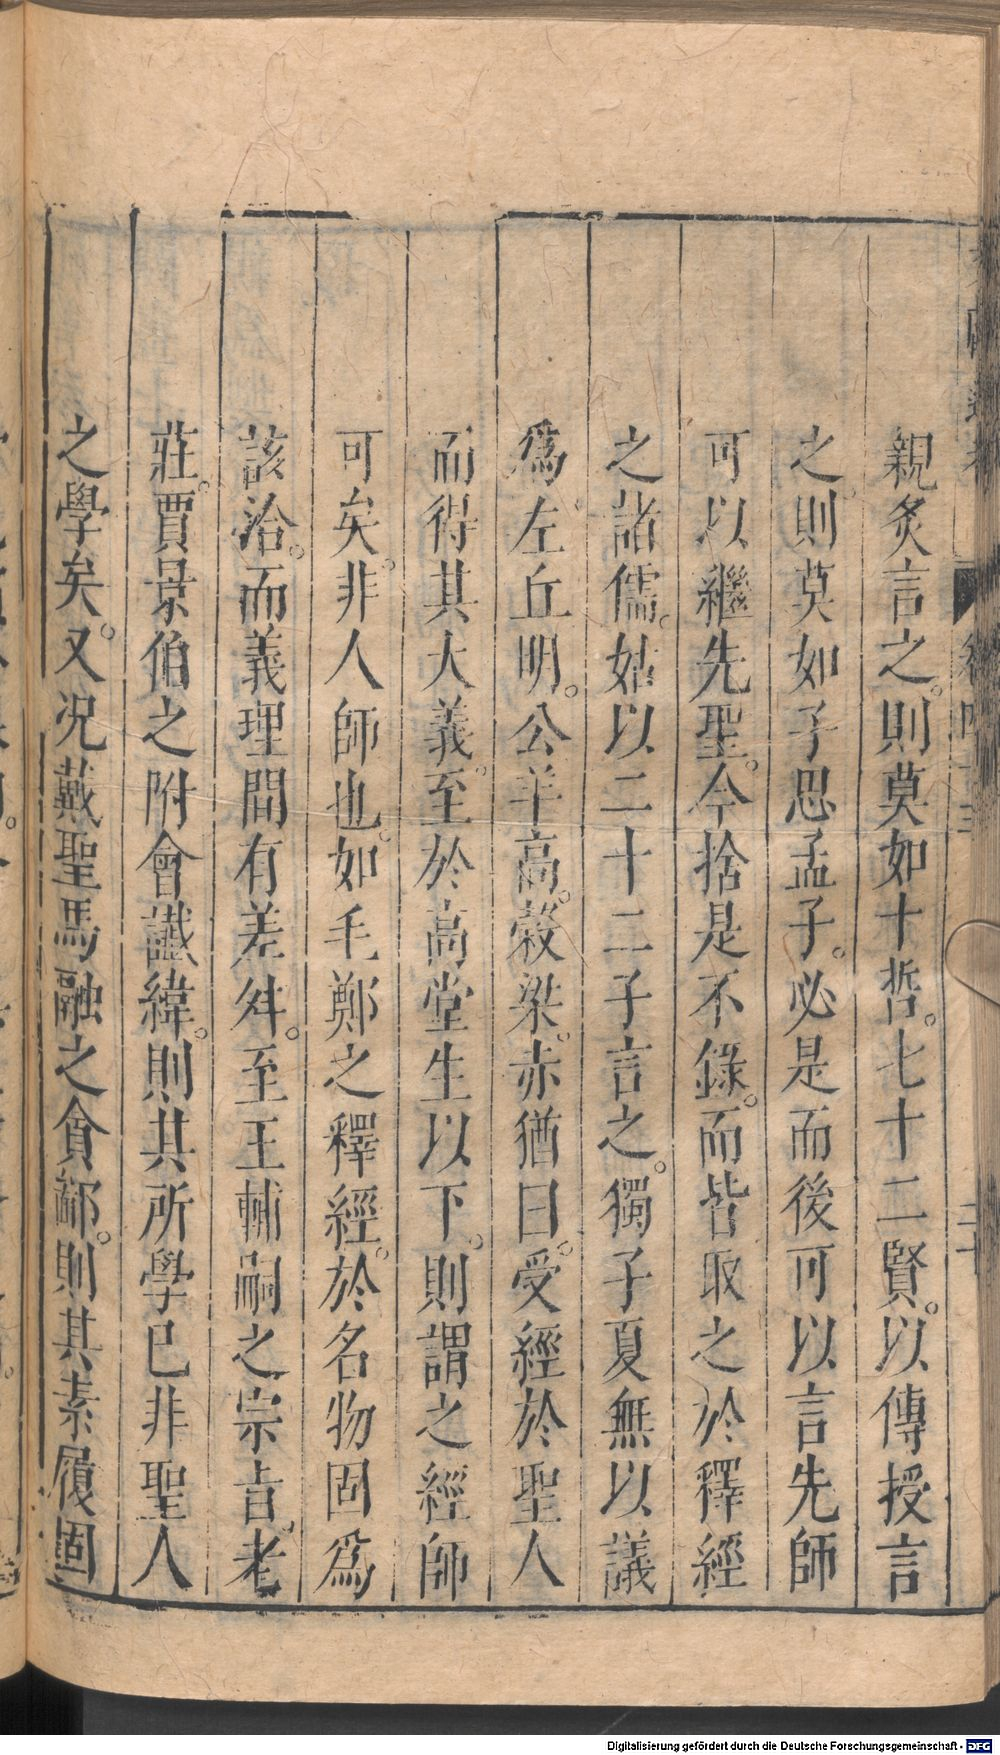 親炙言之。則莫如十哲。七十二賢。以傳授言
之。則莫如子思孟子。必是而後可以言先師
可以繼先聖。今捨是不錄。而皆取之於釋經
之諸儒。姑以二十二子言之。獨子夏無以議
爲。左丘明。公羊高。穀梁。赤猶曰。受經於聖人
而得其大義。至於高堂生以下。則謂之經師
可矣。非人師也。如毛鄭之釋經。於名物固爲
該洽。而義理間有差舛。至王輔嗣之宗旨。老
莊。賈景伯之附會讖緯。則其所學已非聖人
之學矣。又况戴聖馬融之貪鄙。則其素履固
Digitalisierung gefördert durch die Deutsche Forschungsgemeinschaft - DFG